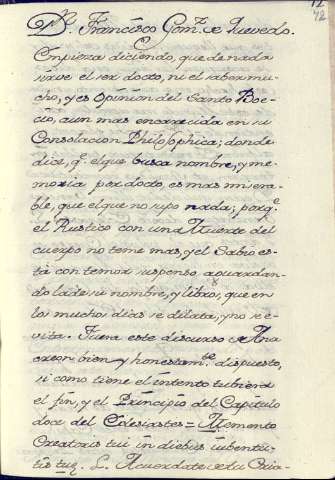 12
72
Dn. Francisco Gom.z de Quevedo.
Empieza diciendo, que de nada
sirve el ser docto, ni el saber mu-
cho, y es Opinion del Santo Boe-
cio, aun mas encarecida en su
Consolacion Philosophica; donde
dice, q.e el que busca nombre, y me-
moria por docto, es mas misera-
ble, que el que no supo nada; porq.e
el Rustico con una Muerte del
cuerpo no teme mas, y el Sabio es-
tà con temor suspenso aguardan-
do la de su nombre, y libros, que en
los muchos dias se dilata, y no se e-
vita. Fuera este discurso de Ana
creon bien y honestam.te dispuesto,
si como tiene el intento tubiera
el fin, y el Principio del Capitulo
doce del Eclesiastes = Memento
Creatoris tui in diebus iubentu-
tis tuę. L. Acuerdate de tu Cria-